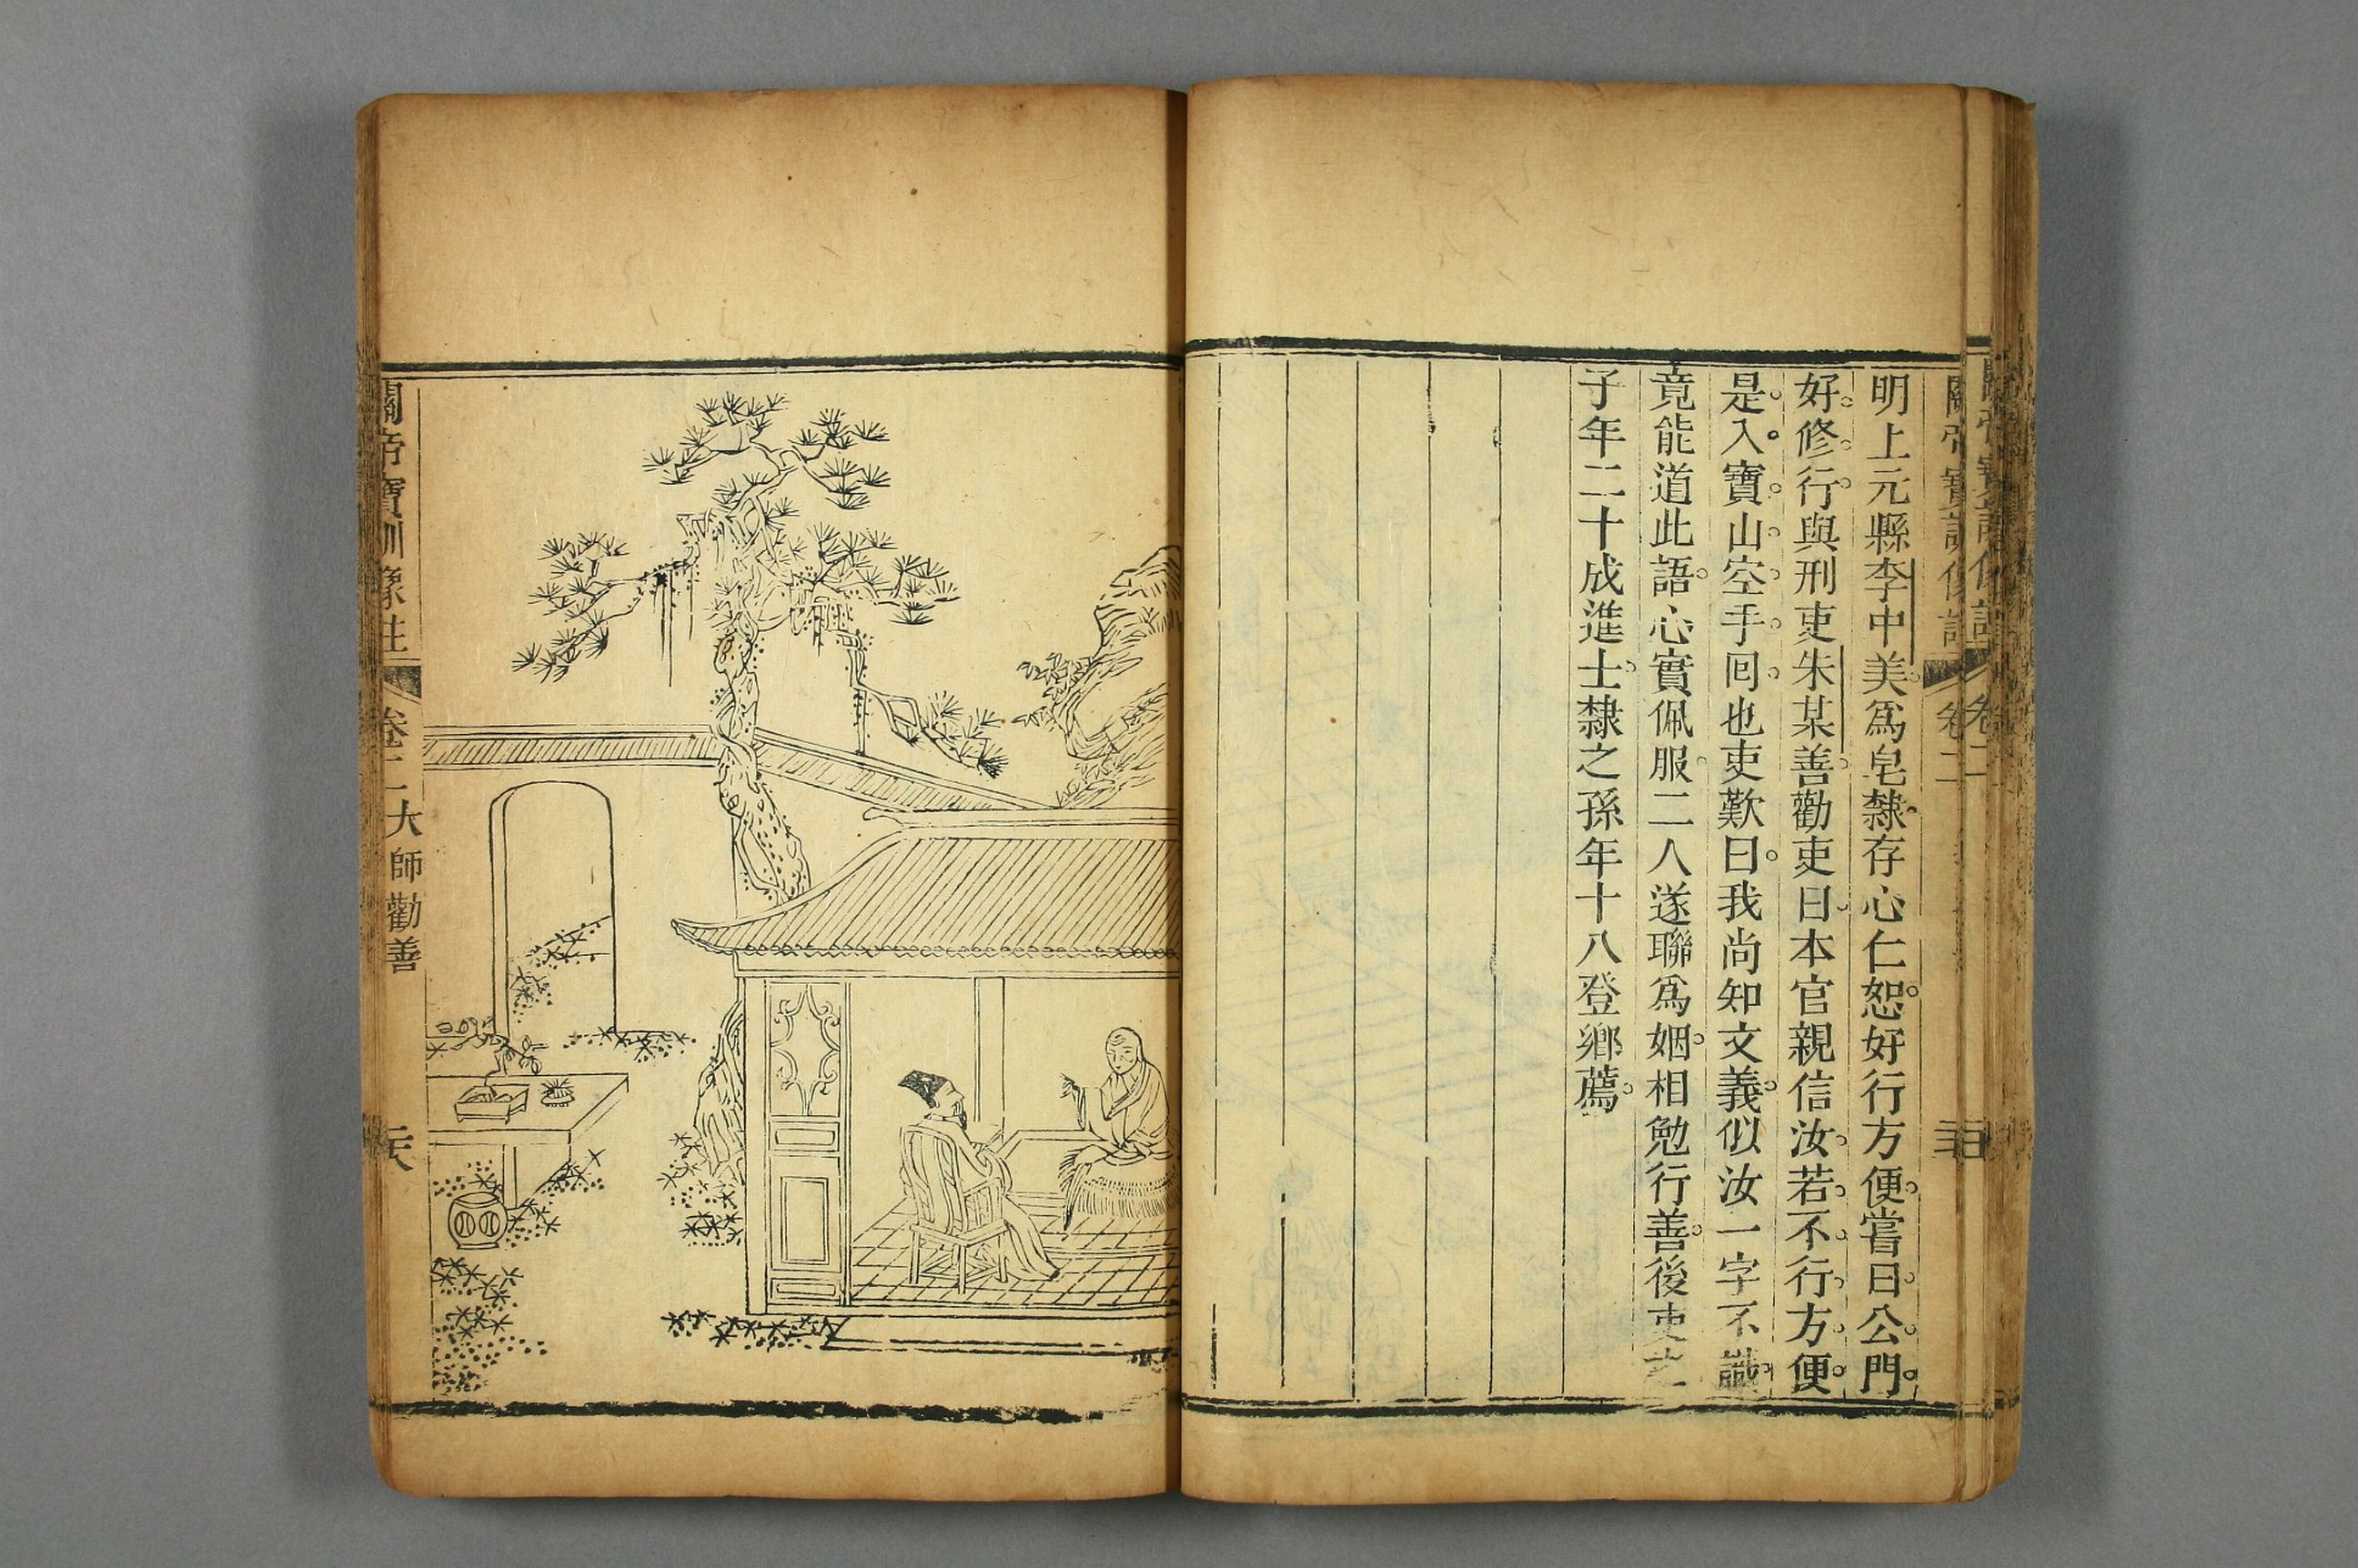 明上元縣李中美爲皂隸存心仁恕好行方便嘗曰公門
好修行與刑吏朱某善勸吏曰本官親信汝若不行方便
是入寶山空手囘也吏歎曰我尚知文義似汝一字不識
竟能道此語心實佩服二人遂聯爲姻相勉行善後吏之
子年二十成進士隸之孫年十八登鄉薦
關帝寶訓像註 卷二 大師勸善